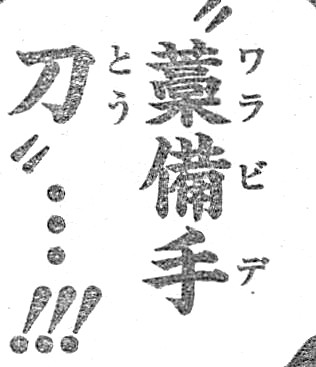 〝藁備手
ワラビデ
刀〟…!!!
とう